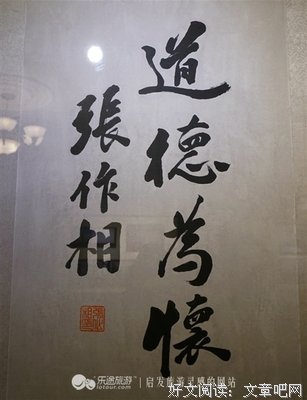 道德為懷
張作相
"乐途旅游"
lotour.com
启发旅游灵感的网站
好文阅读：文章吧网